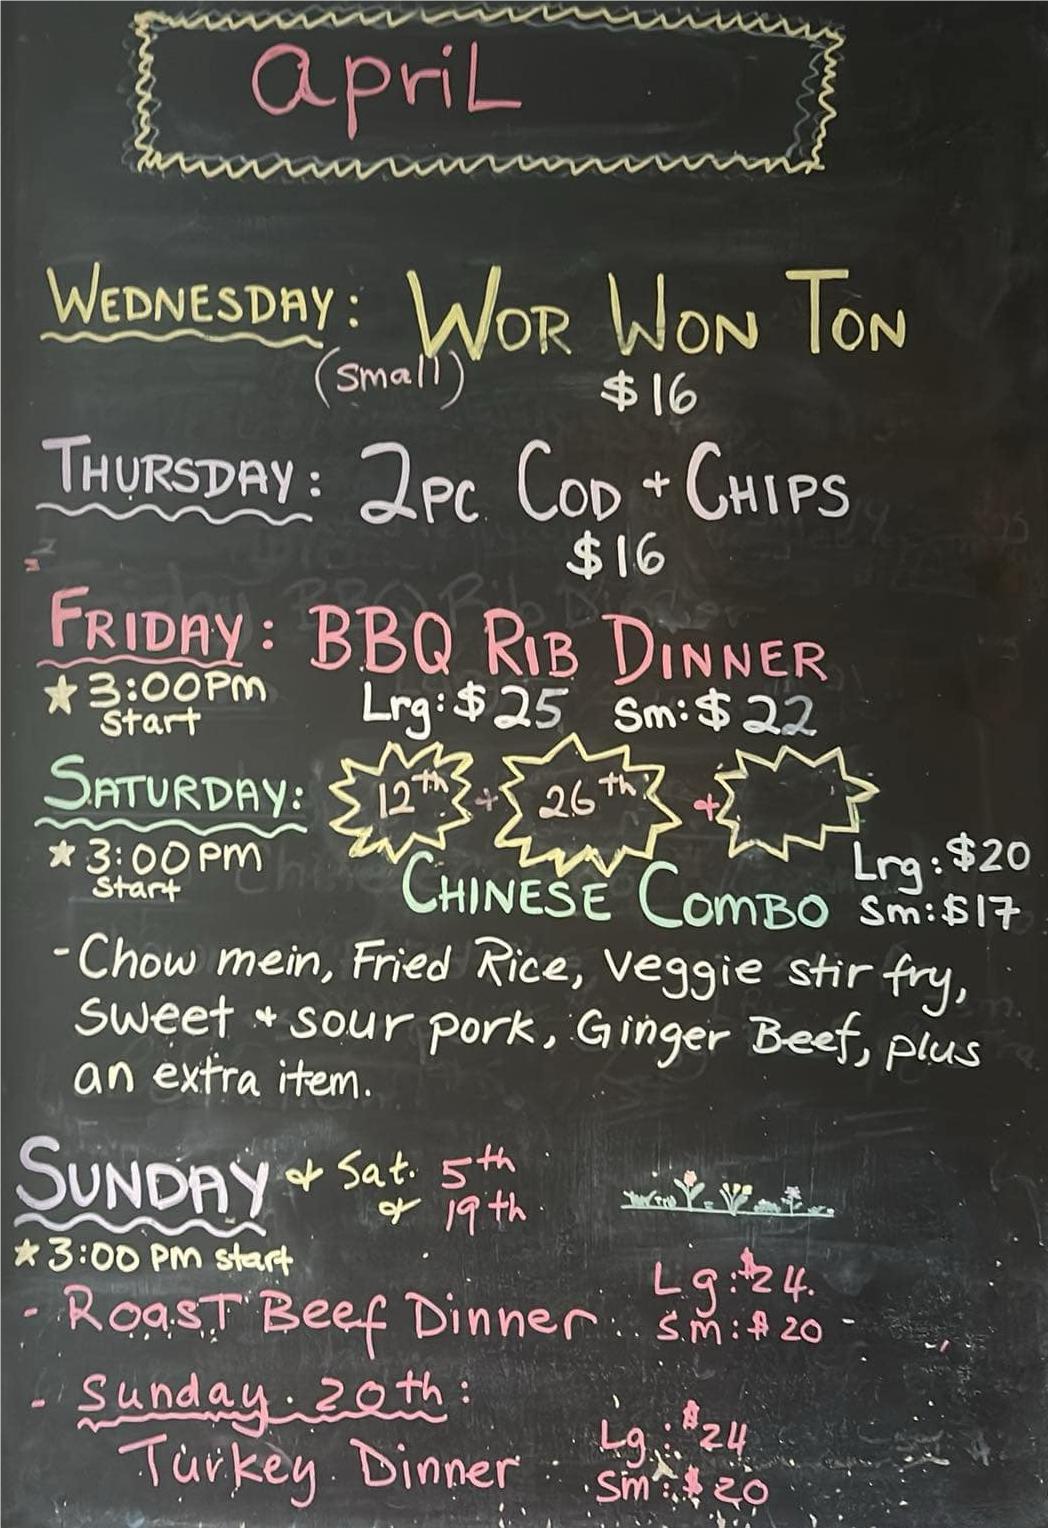 apriL
WEDNESDAY: WOR WON TON
(small) $16
THURSDAY: 2PC COD + CHIPS
$16
FRIDAY: BBQ RIB DINNER
★ 3:00PM Lrg: $25 Sm: $22
start
SATURDAY: 12th + 26th +
★ 3:00PM Lrg: $20
start CHINESE COMBO Sm: $17
- Chow mein, Fried Rice, Veggie stir fry,
Sweet + sour pork, Ginger Beef, plus
an extra item.
SUNDAY + Sat. 5th
+ 19th
★ 3:00 PM start
- Roast Beef Dinner Lg: $24.
Sm: $20 -
- Sunday 20th:
Turkey Dinner Lg: $24
Sm: $20